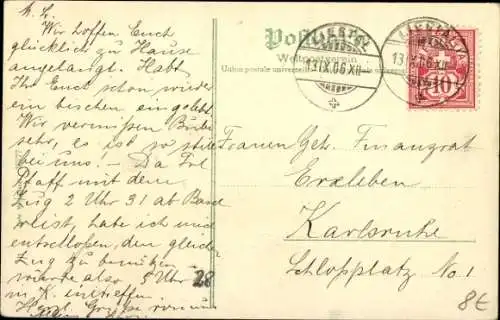 M. L.
Wir hoffen Euch
glücklich zu Hause
angelangt. Habt
Ihr Euch schon wieder
ein bischen eingelebt
Wir vermissen
sehr, es ist so still
bei uns! – Da Frl
Pfaff mit dem
Zug 2 Uhr 31 ab Basel
weist, habe ich mich
entschlossen, den gleichen
Zug zu benützen
würde also 5 Uhr 28
in K. eintreffen
Herzl. Grüsse von uns
Postkarte
Weltpostverein
Union postale universelle
LIESTAL
13.IX.06.XII
LIESTAL
13.IX.06.XII
HELVETIA
10
Frauen Geh. Finanzrat
Erxleben
Karlsruhe
Schloßplatz No. 1
8€